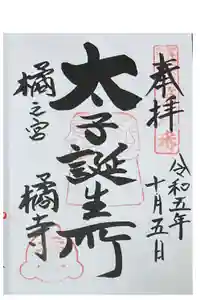 奉拝
令和五年
十月五日
太子誕生所
橘之宮
橘寺